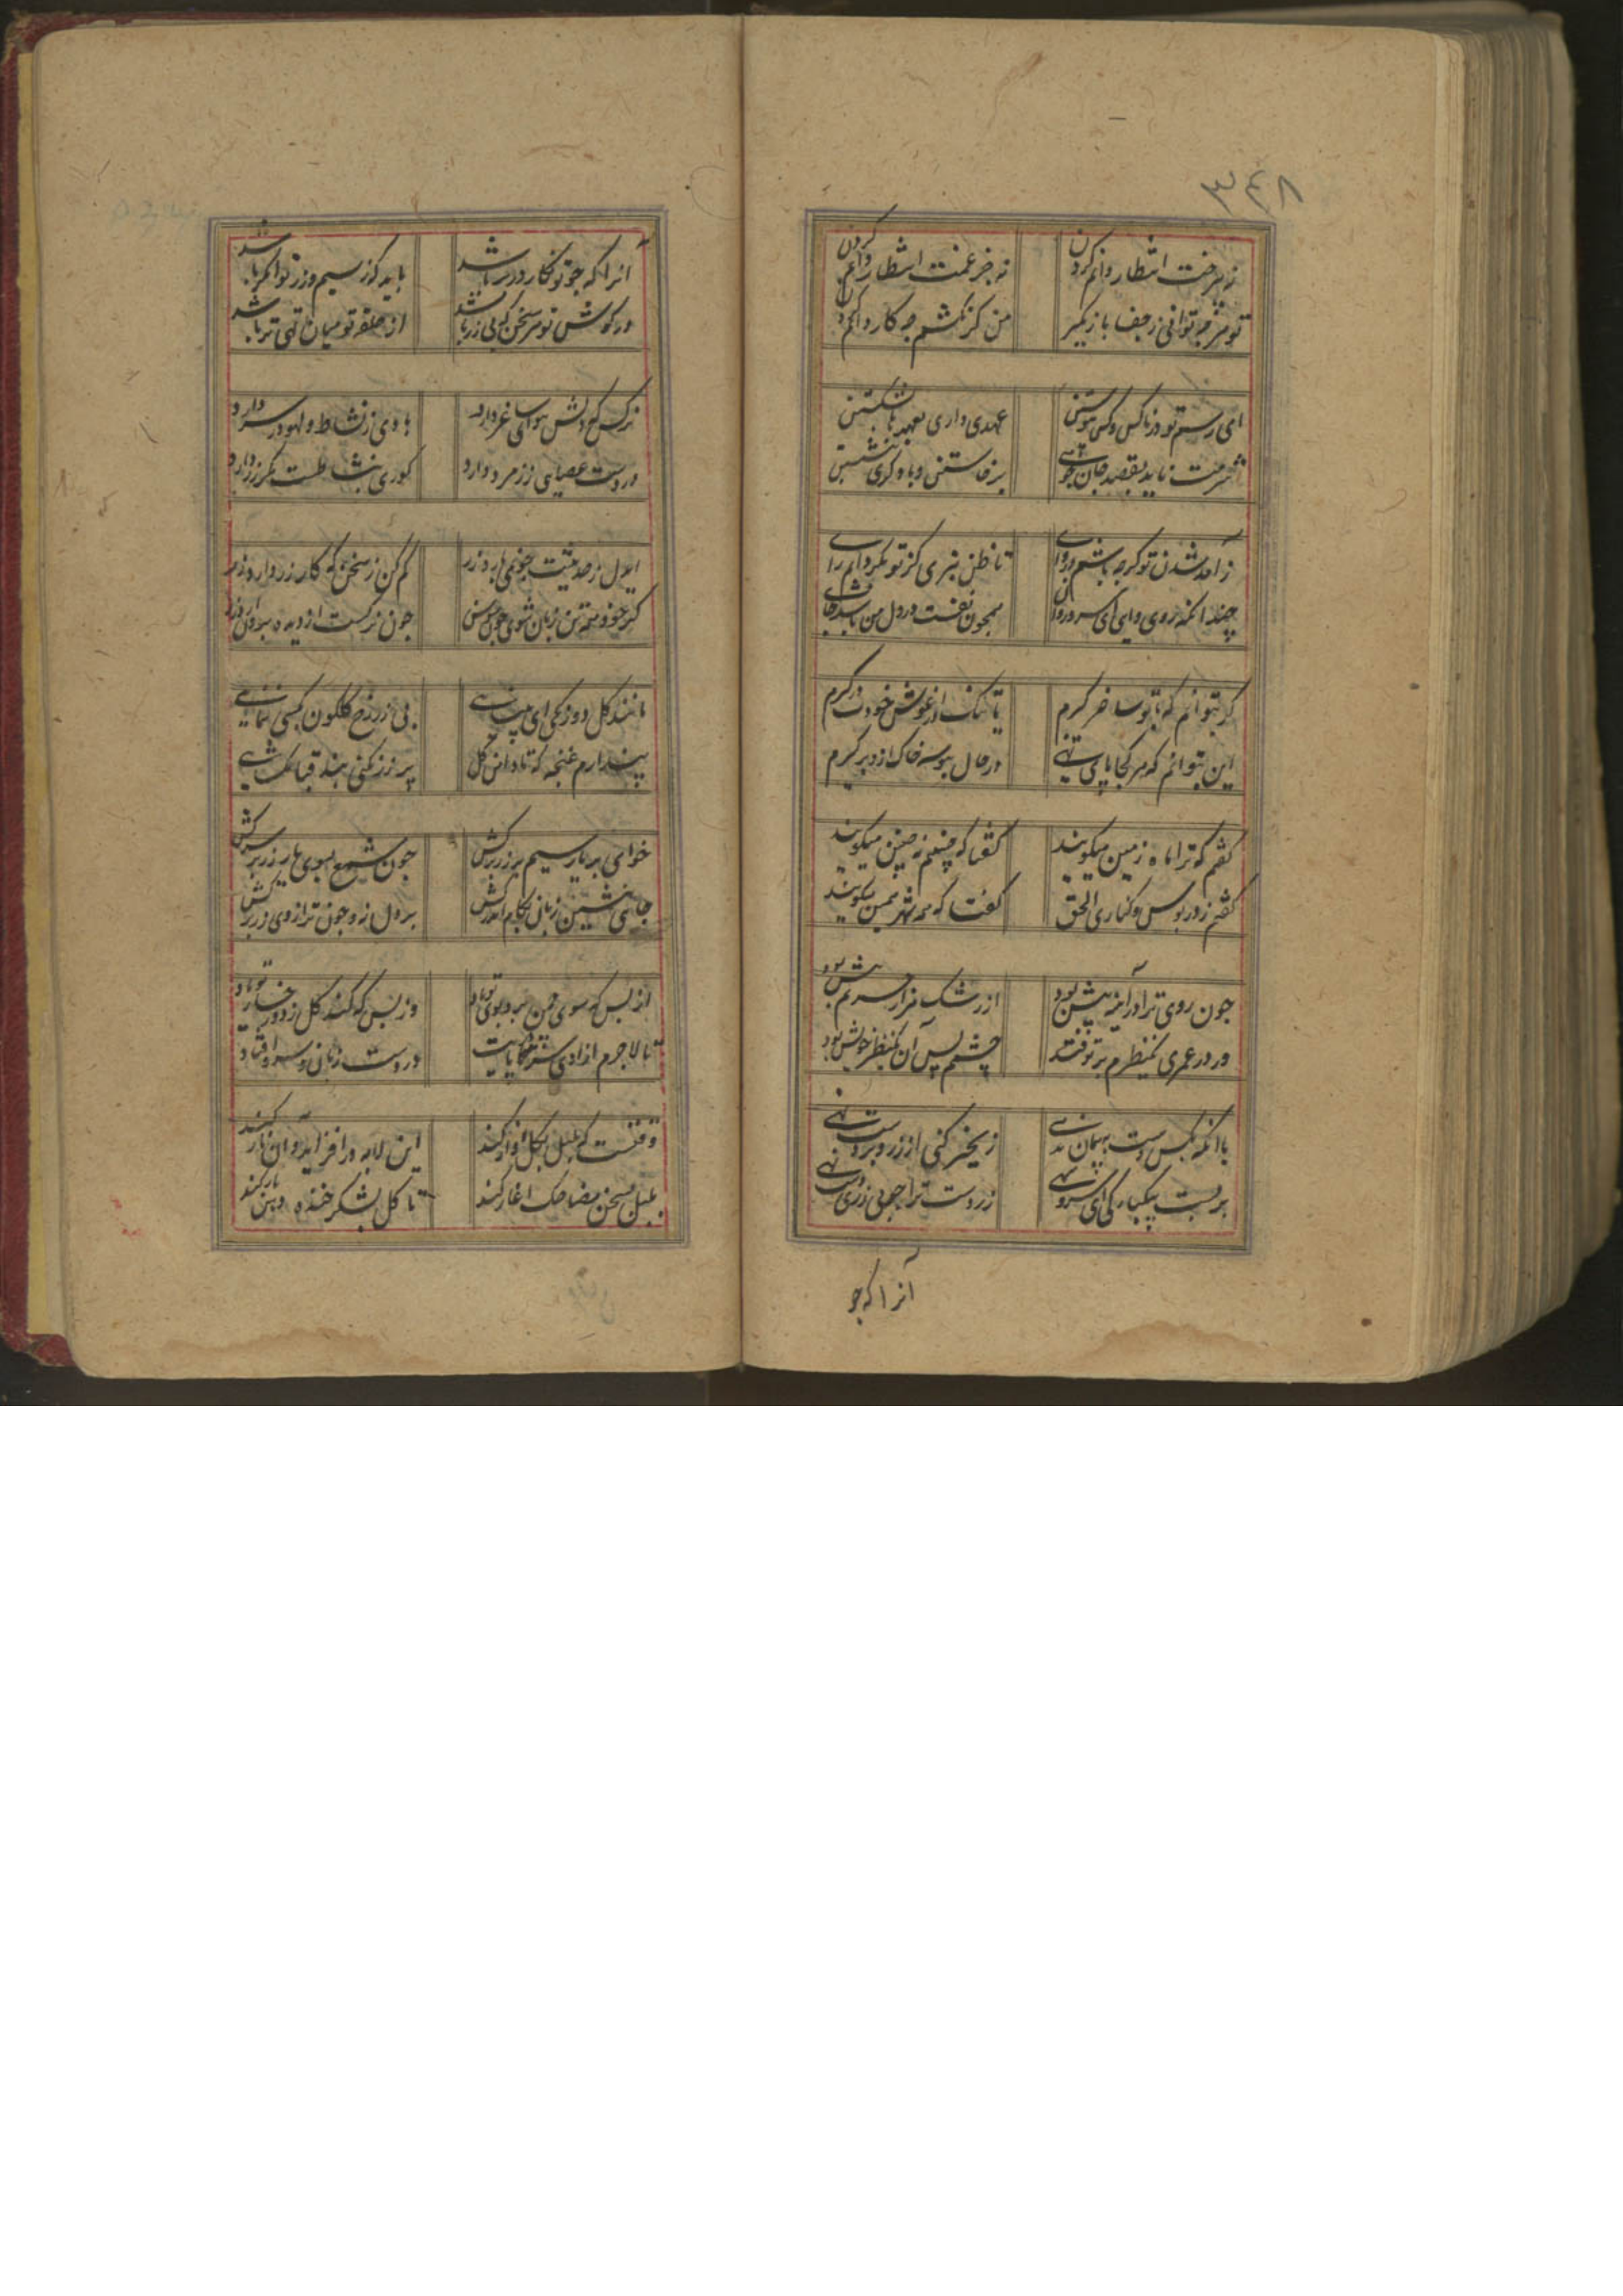 ۳۴۸
نه بی رخت انتظار دانم کردن
نه جز غمت انتظار دانم کردن
تو هرچه توانی ز جفا باز مگیر
من کز نکشم چه کار دانم کردن
ای رسم تو در بناکس و کس
عهدی داری بعهدها بشکستن
شرمت ناید بقصد جان
برخاستن و با دگری بنشستن
ز آمد شدن تو گرچه باشم
تا ظن نبری کز تو بگردانم رای
چندانکه روی و آیی ای سرو روان
همچون نفست در دل من باشد جای
گر نتوانم که با تو ساغر گیرم
یا تنگ در آغوش خودت درگیرم
این بتوانم که هر کجا پای نهی
در حال ببوسه خاک ازو برگیرم
گفتم که ترا ماه زمین میگویند
گفتا که چنینم نه چنین میگویند
گفتم ز در بوس و کناری الحق
گفتا که همه شهر همین میگویند
چون روی ترا در آینه پیش بود
از رشک هزار سر نم بیش بود
ور در عمری یکنظرم بر تو فتد
چشمم پس آن یکنظر خویش بود
با آنکه بکس دست به پیمان ندهی
زنجیر کنی از زر و بر دست نهی
بر دست یکبارگی ای سرو سهی
زر دست ترا چو بی زری دست نهی
آنرا که چو
آنرا که چو تو نگار در بر باشد
باید کو ز سیم و زر توانگر باشد
در گوش تو هر سخن که بی زر باشد
از حلقه تو میان تهی تر باشد
نرگس که دلش هوای ساغر دارد
باوی ز نشاط و لهو در سر دارد
در دست عصایی ز زمرد دارد
کوری بنشاطست مگر زر دارد
ایدل ز حدیث چونکه دارد زر
کم کن ز سخن که کار زر دارد زر
گر خود همه تن زبان شوی چون سوسن
چون نرگست از دیده بر آن دارد زر
مانند گل دوزنگی ای
بی زر رخ گلگون بکسی ننمایی
پندارم غنچه که تا دامن گل
پر زر نکنی بند قبا نگشایی
خواهی بر یار سیم بر زر برکش
چون شمع بسوی یار زر بر سر کش
جایی بنشین زبان بکام اندر کش
بر دل نه و چون ترازوی زر برکش
از بس که سوی چمن برد بوی تو باد
وز بس که کند گل ز رخسار تو یاد
تا لاجرم ازادی
در دست و زبان سرو افتاد
وقتست که بلبل بگل آواز کند
این لابه در افزاید و آن ناز کند
بلبل بسخن مضاحک اغاز کند
تا گل بشکر خنده دهن باز کند